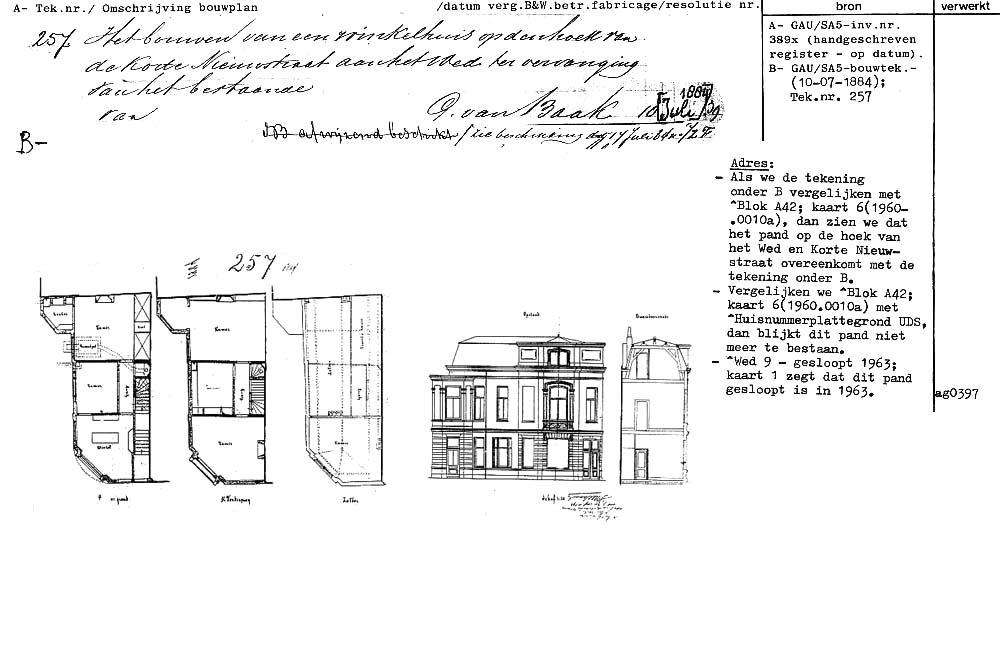 A- Tek.nr./ Omschrijving bouwplan /datum verg.B&W.betr.fabricage/resolutie nr.
bron
verwerkt
257 Het bouwen van een winkelhuis op den hoek van
de Korte Nieuwstraat aan het Wed ter vervanging
van het bestaande
van G. van Baak 10 Juli 1884
B-
A- GAU/SA5-inv.nr.
389x (handgeschreven
register - op datum).
B- GAU/SA5-bouwtek.-
(10-07-1884);
Tek.nr. 257
Adres:
- Als we de tekening
onder B vergelijken met
^Blok A42; kaart 6(1960-
.0010a), dan zien we dat
het pand op de hoek van
het Wed en Korte Nieuw-
straat overeenkomt met de
tekening onder B.
- Vergelijken we ^Blok A42;
kaart 6(1960.0010a) met
^Huisnummerplattegrond UDS,
dan blijkt dit pand niet
meer te bestaan.
- ^Wed 9 - gesloopt 1963;
kaart 1 zegt dat dit pand
gesloopt is in 1963.
ag0397
257
Kamer
Kamer
Kamer
Kamer
Winkel
Kamer
Kamer
Opstand
Zolder